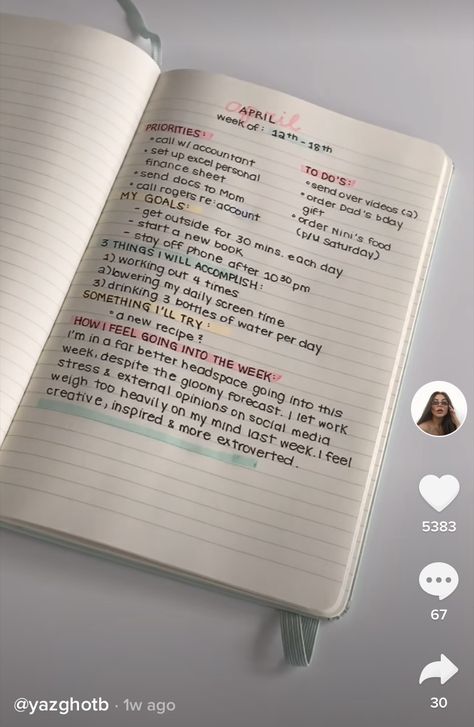 april
APRIL
week of: 12th - 18th
PRIORITIES:
• call w/ accountant
• set up excel personal
finance sheet
• send docs to Mom
• call rogers re: account
TO DO'S:
• send over videos (2)
• order Dad's bday
gift
• order Nini's food
(p/u Saturday)
MY GOALS:
- get outside for 30 mins. each day
- start a new book
- stay off phone after 10:30 pm
3 THINGS I WILL ACCOMPLISH:
1) working out 4 times
2) lowering my daily screen time
3) drinking 3 bottles of water per day
SOMETHING I'LL TRY:
• a new recipe?
HOW I FEEL GOING INTO THE WEEK:
I'm in a far better headspace going into this
week, despite the gloomy forecast. I let work
stress & external opinions on social media
weigh too heavily on my mind last week. I feel
creative, inspired & more extroverted.
5383
67
30
@yazghotb · 1w ago